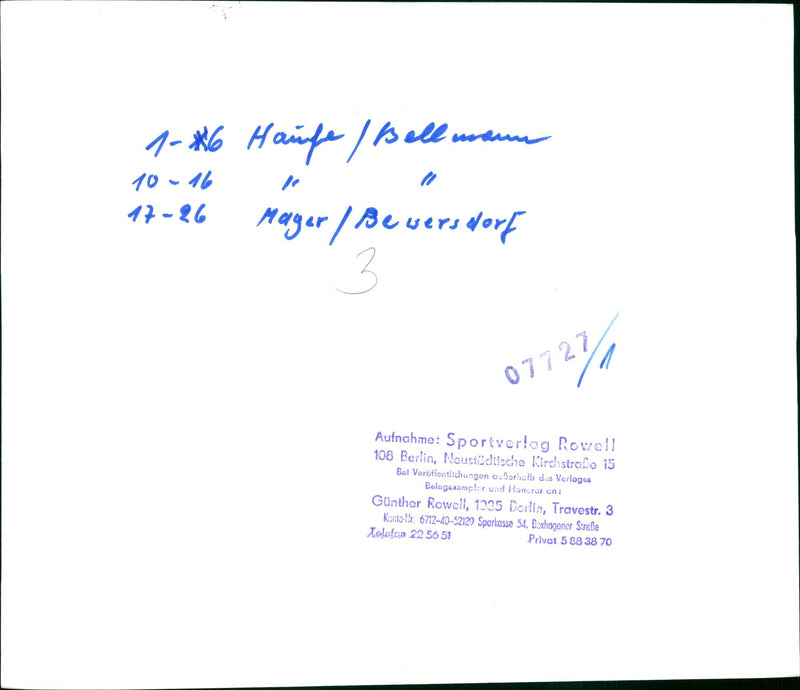 1-6 Haufe / Bellmann
10-16 " "
17-26 Mager / Bewersdorf
3
07727/1
Aufnahme: Sportverlag Rowell
108 Berlin, Neustädtische Kirchstraße 15
Bei Veröffentlichungen außerhalb des Verlages
Belegexemplar und Honorar an:
Günther Rowell, 1035 Berlin, Travestr. 3
Konto-Nr. 6712-40-52129 Sparkasse 54, Boxhagener Straße
Telefon 22 56 51 Privat 5 88 38 70